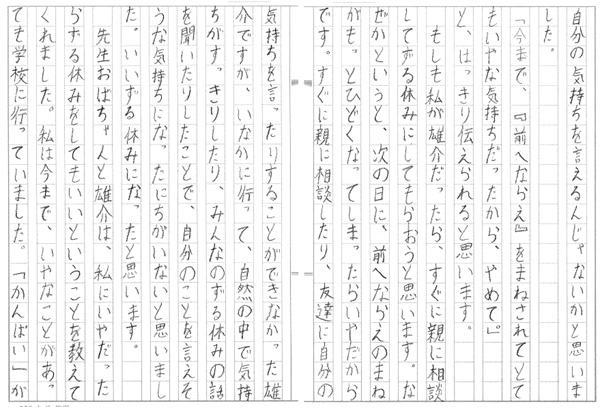 自分の気持ちを言えるんじゃないかと思いま
した。
「今まで、『前へならえ』をまねされてとて
もいやな気持ちだったから、やめて。」
と、はっきり伝えられると思います。
もしも私が雄介だったら、すぐに親に相談
してずる休みにしてもらおうと思います。な
ぜかというと、次の日に、前へならえのまね
がもっとひどくなってしまったらいやだから
です。すぐに親に相談したり、友達に自分の
気持ちを言ったりすることができなかった雄
介ですが、いなかに行って、自然の中で気持
ちがすっきりしたり、みんなのずる休みの話
を聞いたりしたことで、自分のことを言えそ
うな気持ちになったにちがいないと思いまし
た。いいずる休みになったと思います。
先生おばちゃんと雄介は、私にいやだった
らずる休みをしてもいいということを教えて
くれました。私は今まで、いやなことがあっ
ても学校に行っていました。「かんぱい」が